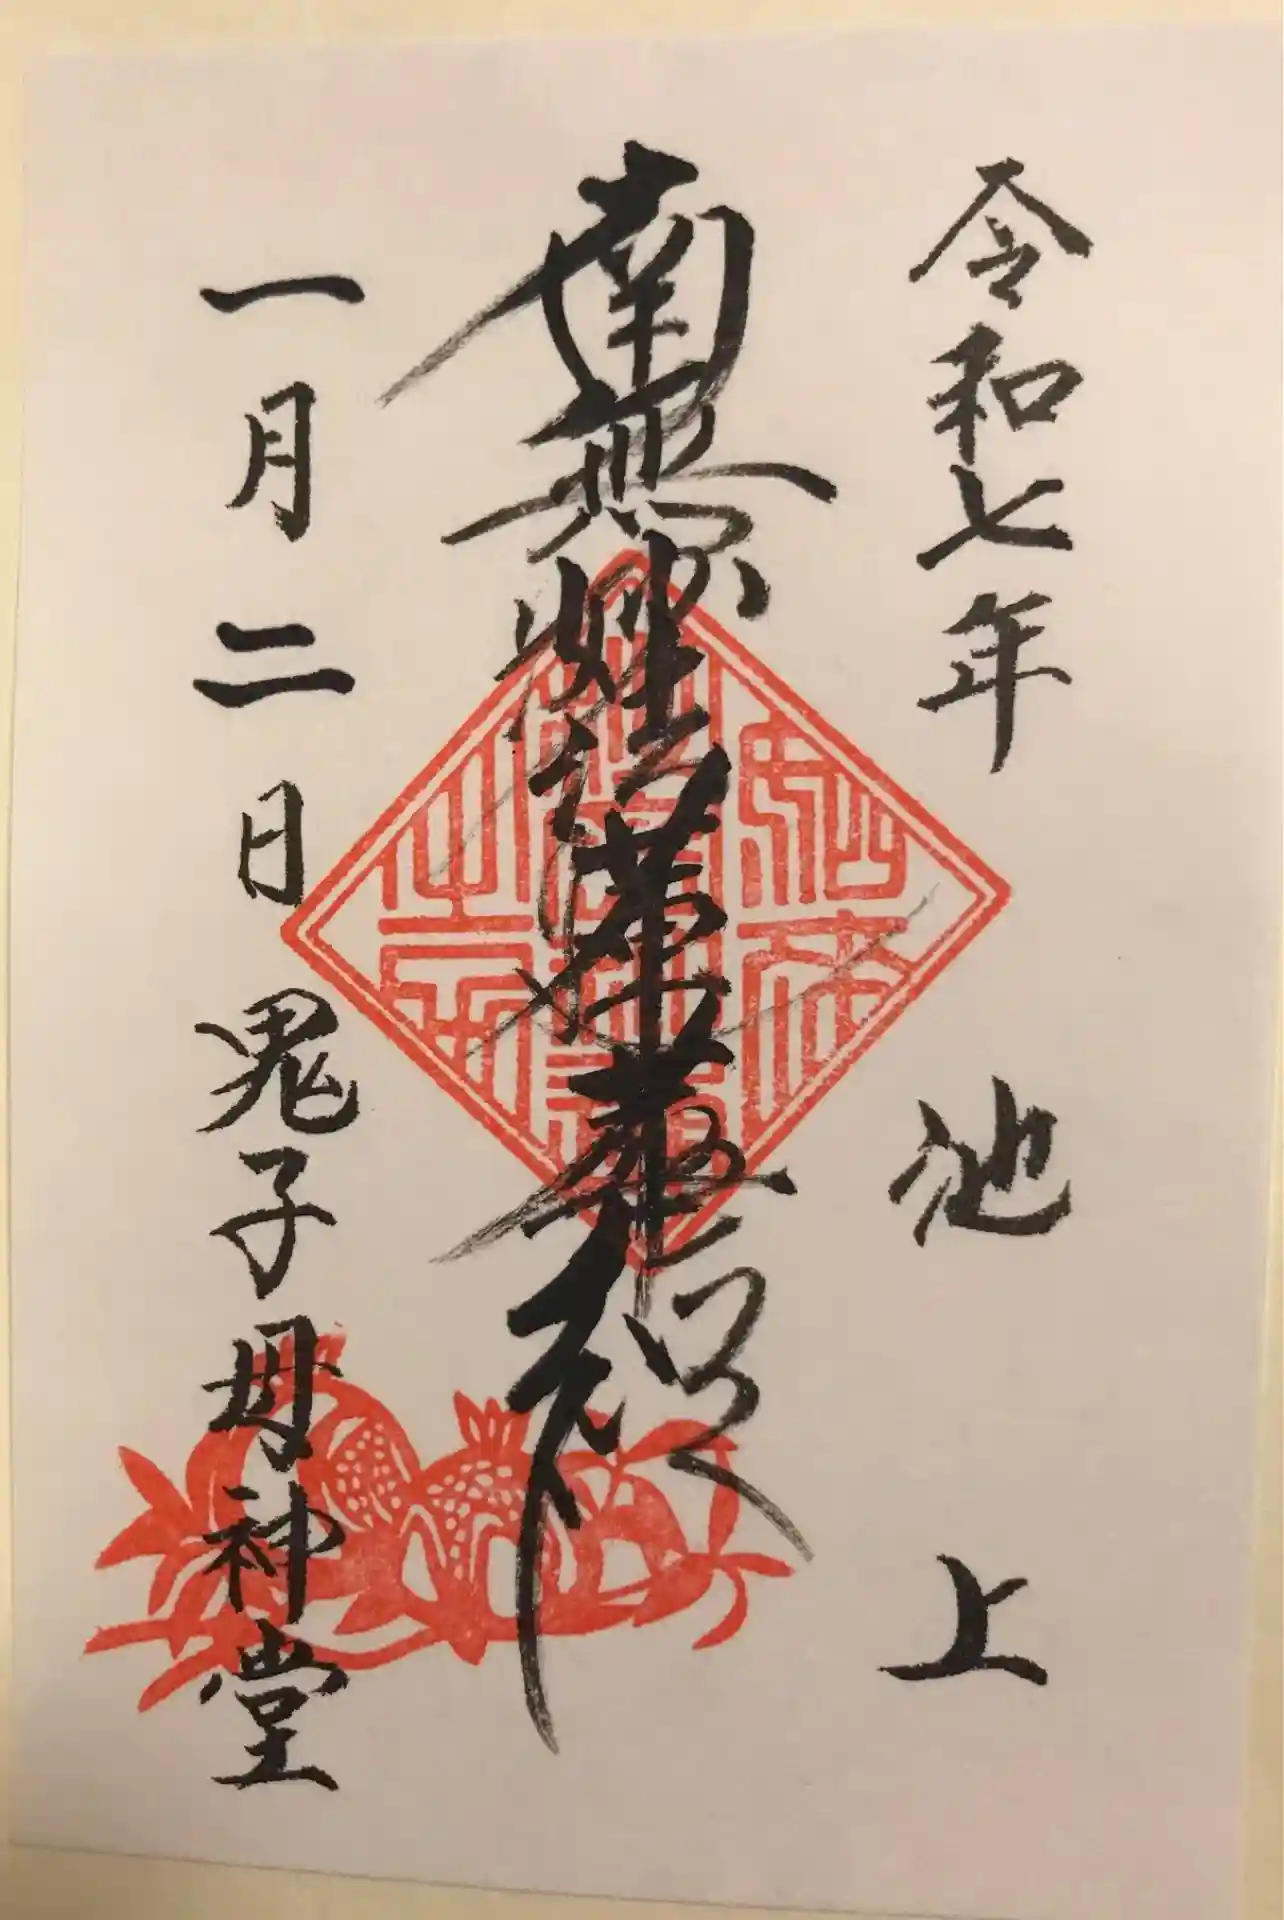 令和七年 池上
南無妙法蓮華経
一月二日 鬼子母神堂